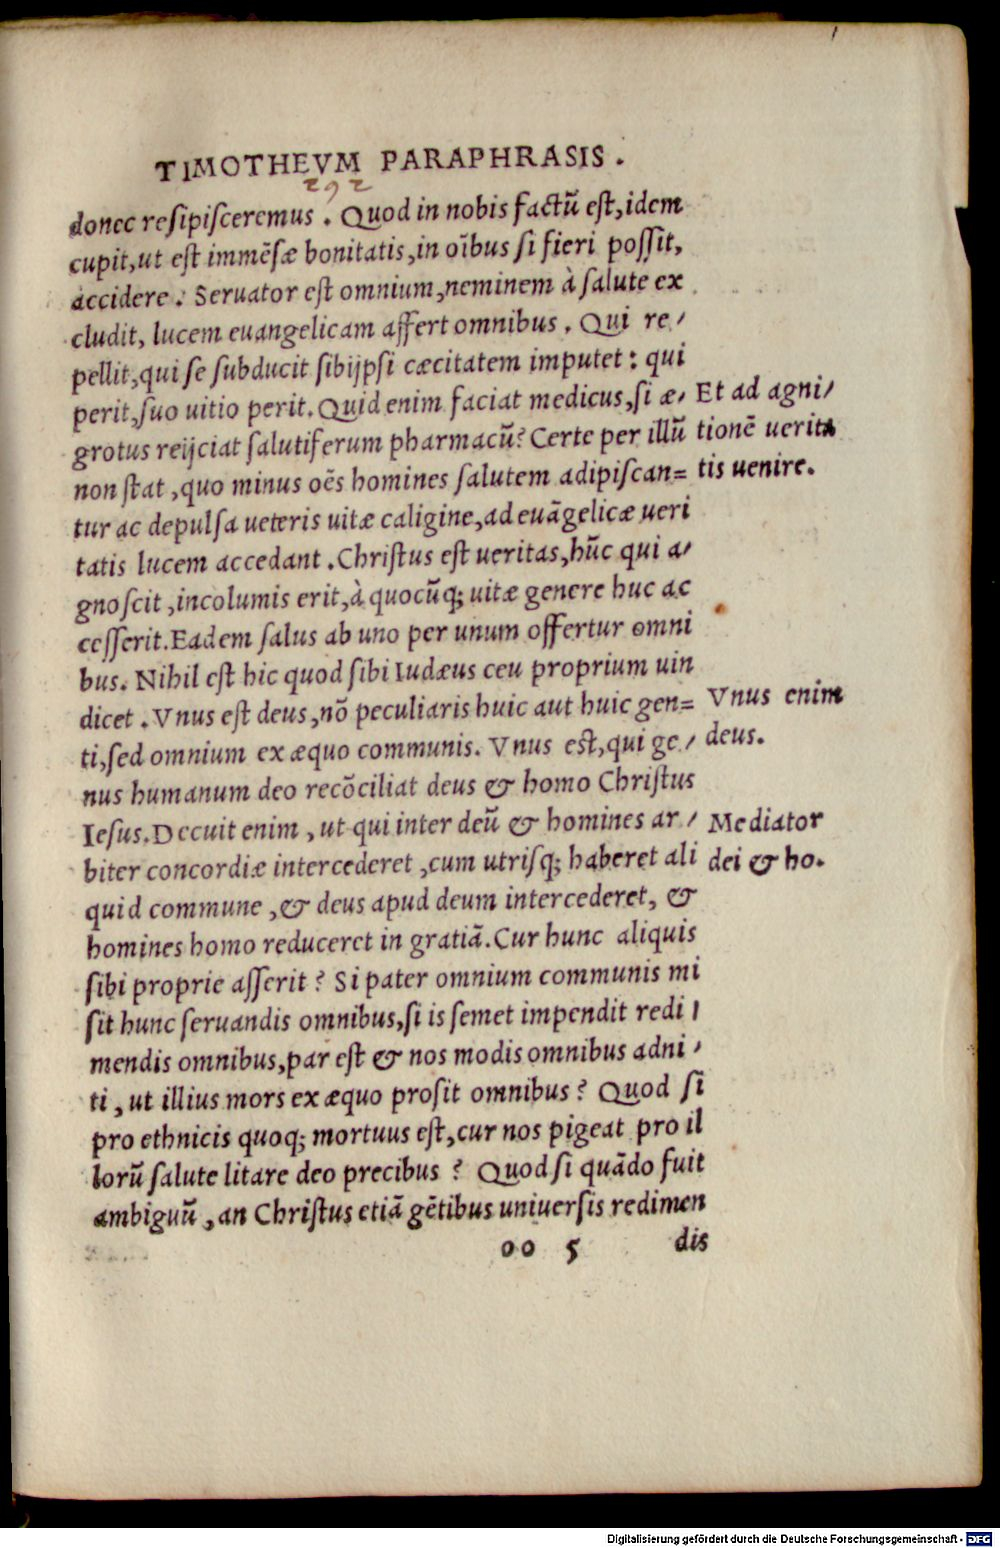 TIMOTHEVM PARAPHRASIS.
292
donec resipisceremus. Quod in nobis factū est, idem
cupit, ut est immēsæ bonitatis, in oībus si fieri possit,
accidere. Seruator est omnium, neminem à salute ex
cludit, lucem euangelicam affert omnibus. Qui re,
pellit, qui se subducit sibijpsi cæcitatem imputet: qui
perit, suo uitio perit. Quid enim faciat medicus, si æ,
grotus reijciat salutiferum pharmacū? Certe per illū
non stat, quo minus oēs homines salutem adipiscan=
tur ac depulsa ueteris uitæ caligine, ad euāgelicæ ueri
tatis lucem accedant. Christus est ueritas, hūc qui a,
gnoscit, incolumis erit, à quocūq; uitæ genere huc ac
cesserit. Eadem salus ab uno per unum offertur omni
bus. Nihil est hic quod sibi Iudæus ceu proprium uin
dicet. Vnus est deus, nō peculiaris huic aut huic gen=
ti, sed omnium ex æquo communis. Vnus est, qui ge,
nus humanum deo recōciliat deus & homo Christus
Iesus. Decuit enim, ut qui inter deū & homines ar,
biter concordiæ intercederet, cum utrisq; haberet ali
quid commune, & deus apud deum intercederet, &
homines homo reduceret in gratiā. Cur hunc aliquis
sibi proprie asserit? Si pater omnium communis mi
sit hunc seruandis omnibus, si is semet impendit redi,
mendis omnibus, par est & nos modis omnibus adni,
ti, ut illius mors ex æquo prosit omnibus? Quod si
pro ethnicis quoq; mortuus est, cur nos pigeat pro il
lorū salute litare deo precibus? Quod si quādo fuit
ambiguū, an Christus etiā gētibus uniuersis redimen
oo 5 dis
Et ad agni,
tionē uerita
tis uenire.
Vnus enim
deus.
Mediator
dei & ho.
Digitalisierung gefördert durch die Deutsche Forschungsgemeinschaft - DFG